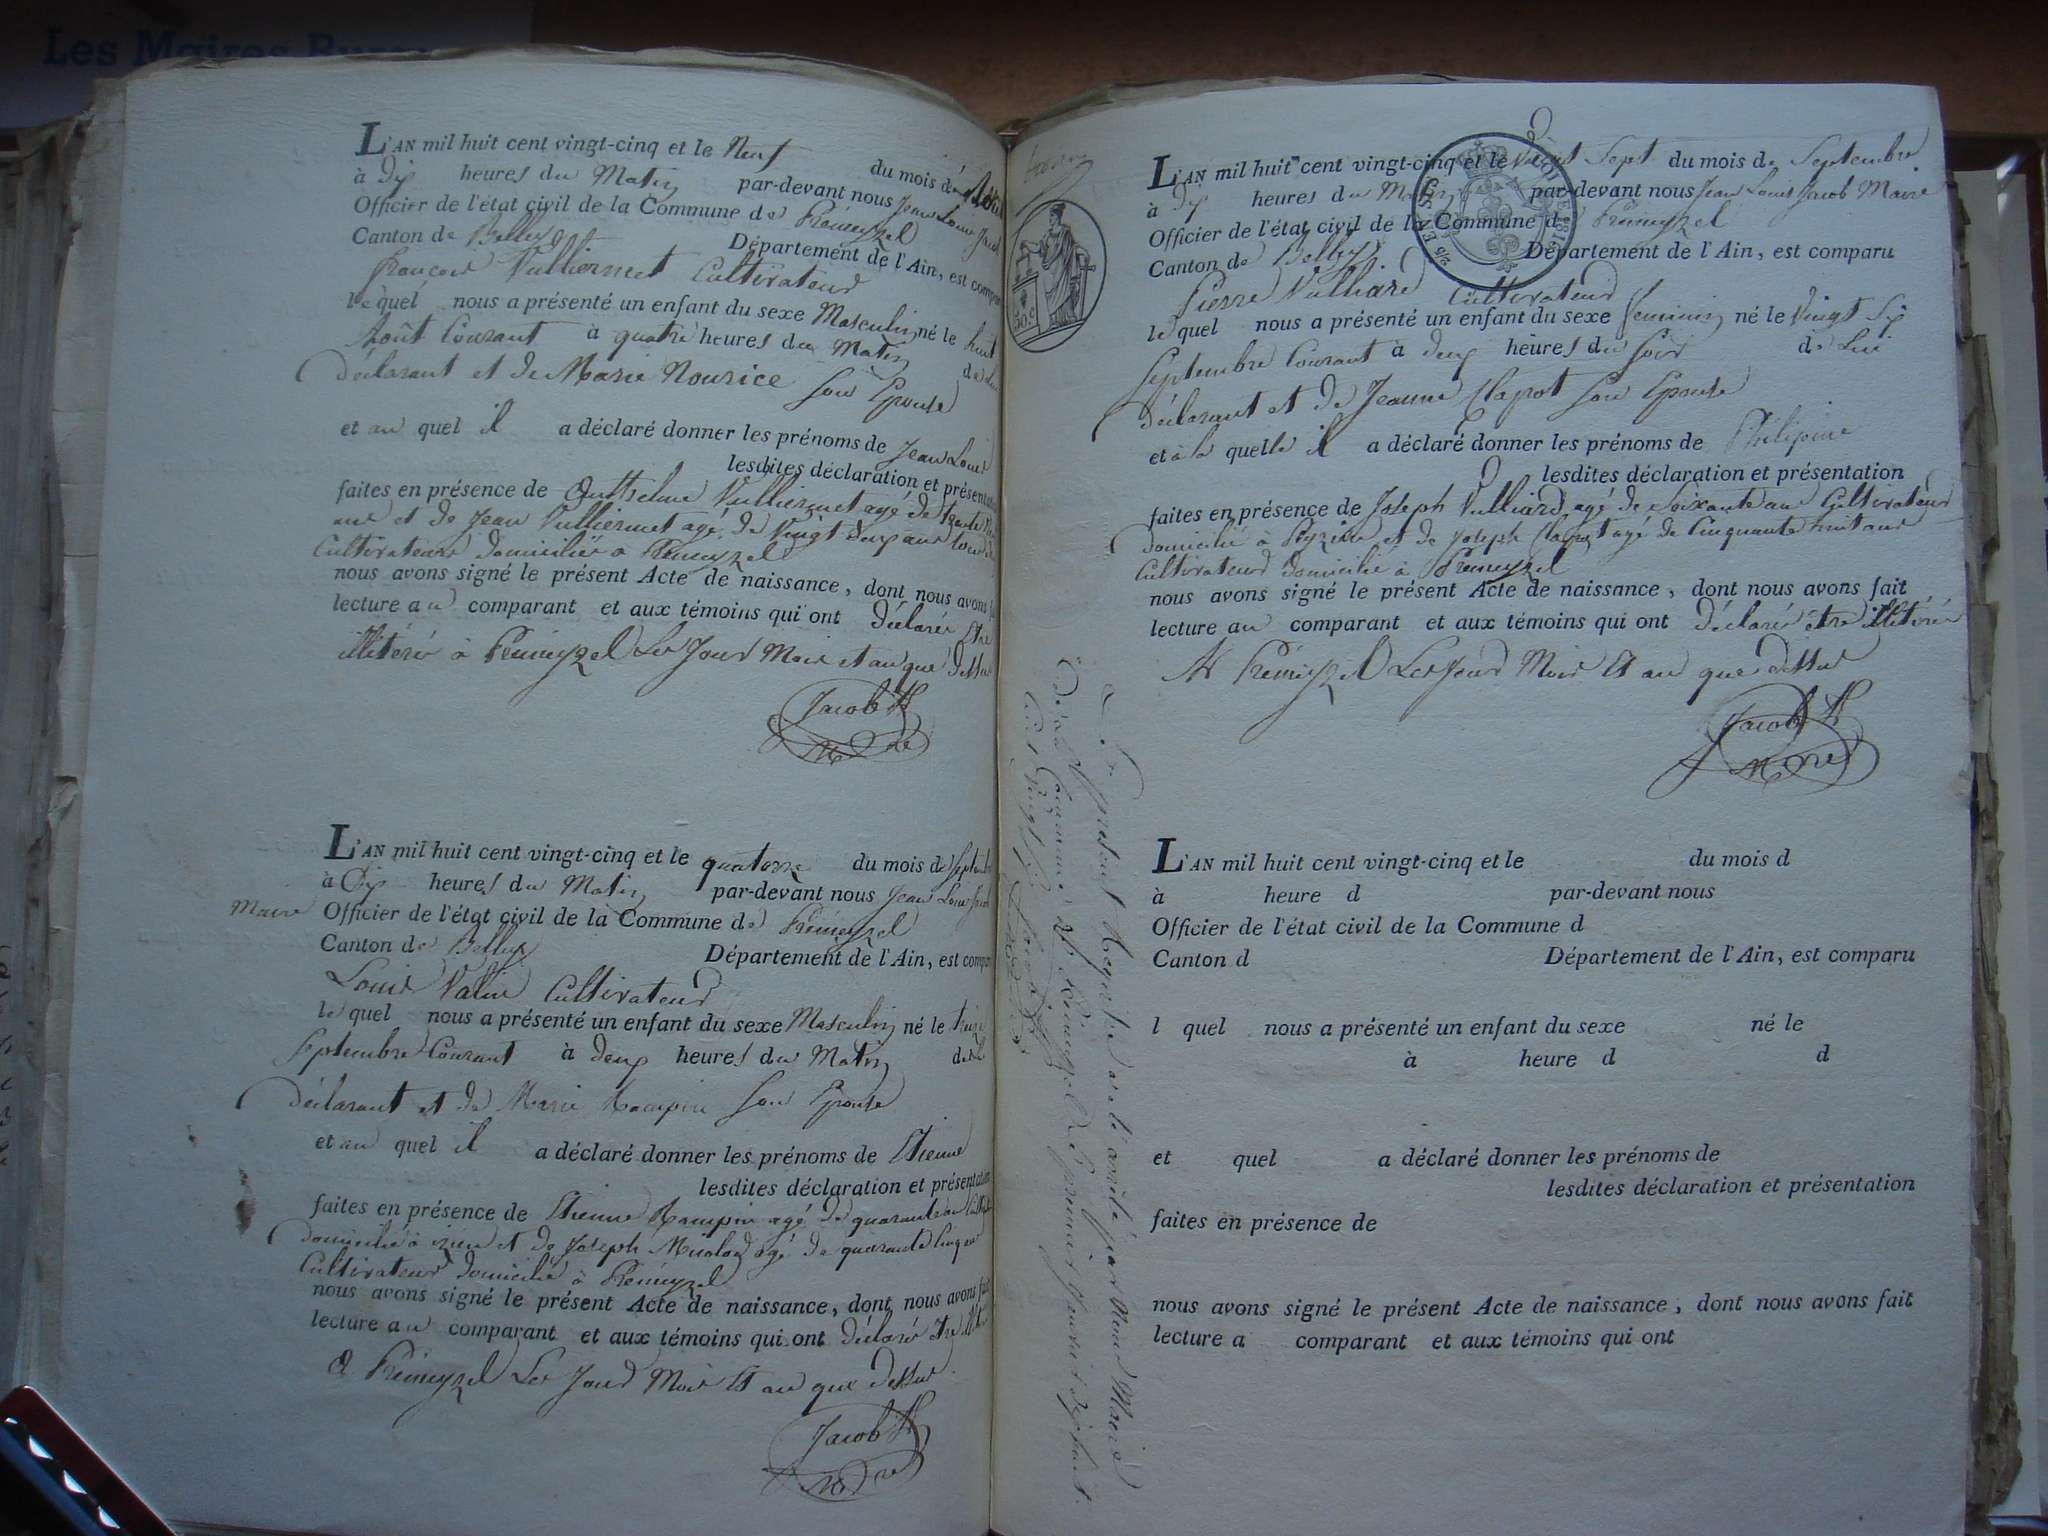 Les Maires
L'AN mil huit cent vingt-cinq et le Neuf du mois d' Août
à Dix heures du Matin par-devant nous Jean Louis Jacob
Officier de l'état civil de la Commune de Prémeyzel
Canton de Belley Département de l'Ain, est comparu
françois Vulliermet Cultivateur
lequel nous a présenté un enfant du sexe Masculin né le huit
Août Courant à quatre heures du Matin de lui
déclarant et de Marie Nourice Son Epouse
et au quel il a déclaré donner les prénoms de Jean Louis
lesdites déclaration et présentation
faites en présence de Vulliermet agé de trente
ans et de Jean Vulliermet agé de Vingt deux ans tous
Cultivateurs domiciliés à Prémeyzel
nous avons signé le présent Acte de naissance, dont nous avons fait
lecture au comparant et aux témoins qui ont déclarés Etre
illitérés à Prémeyzel Les Jour Mois et an que dessus
Jacob
L'AN mil huit cent vingt-cinq et le quatorze du mois de Septembre
à Dix heures du Matin par-devant nous Jean Louis Jacob
Maire Officier de l'état civil de la Commune de Prémeyzel
Canton de Belley Département de l'Ain, est comparu
Louis Cultivateur
le quel nous a présenté un enfant du sexe Masculin né le treize
Septembre Courant à deux heures du Matin de lui
déclarant et de Marie Son Epouse
et au quel il a déclaré donner les prénoms de Etienne
lesdites déclaration et présentation
faites en présence de Etienne agé de quarante
domicilié à et de Joseph agé de quarante Cinq ans
Cultivateur domicilié à Prémeyzel
nous avons signé le présent Acte de naissance, dont nous avons fait
lecture au comparant et aux témoins qui ont déclarés être
à Prémeyzel Les Jour Mois Et an que dessus
Jacob
30.c
L'AN mil huit cent vingt-cinq et le Vingt Sept du mois de Septembre
à Dix heures du Matin par-devant nous Jean Louis Jacob Maire
Officier de l'état civil de la Commune de Prémeyzel
Canton de Belley Département de l'Ain, est comparu
Pierre Vulliard Cultivateur
le quel nous a présenté un enfant du sexe féminin né le Vingt Six
Septembre Courant à deux heures du Soir de Lui
déclarant et de Jeanne Clapot Son Epouse
et à la quelle il a déclaré donner les prénoms de Philipine
lesdites déclaration et présentation
faites en présence de Joseph Vulliard, agé de Soixante ans Cultivateur
domicilié à Peyzieu et de Joseph Clapot agé de Cinquante huit ans
Cultivateur domicilié à Prémeyzel
nous avons signé le présent Acte de naissance, dont nous avons fait
lecture au comparant et aux témoins qui ont déclarés être illitérés
A Prémeyzel Les Jour Mois Et an que dessus
Jacob
Le présent Régistre a été arrêté par Nous Maire
de la Commune de Prémeyzel
L'AN mil huit cent vingt-cinq et le du mois d
à heure d par-devant nous
Officier de l'état civil de la Commune d
Canton d Département de l'Ain, est comparu
l quel nous a présenté un enfant du sexe né le
à heure d d
et quel a déclaré donner les prénoms de
lesdites déclaration et présentation
faites en présence de
nous avons signé le présent Acte de naissance, dont nous avons fait
lecture a comparant et aux témoins qui ont